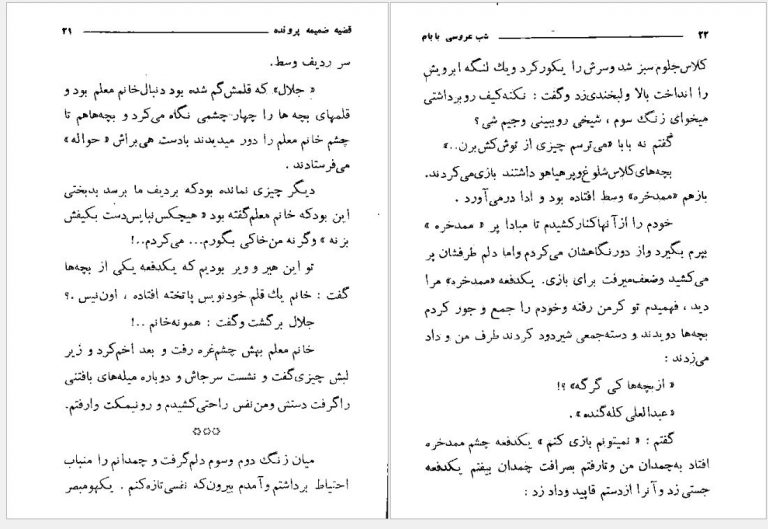 قضیه ضمیمه پرونده ۲۱
سر ردیف وسط.
« جلال» که قلمش‌گم شده بود دنبال‌خانم معلم بود و
قلمهای بچه ها را چهار-چشمی نگاه می‌کرد و بچه‌هاهم تا
چشم خانم معلم را دور میدیدند بادست هی‌براش « حواله »
می‌فرستادند .
دیگر چیزی نمانده بودکه بردیف ما برسد بدبختی
این بودکه خانم معلم‌گفته بود « هیچکس‌نبایس‌دست بکیفش
بزنه » وگرنه من‌خاکی بگورم... می‌کردم..!
تو این هیر و ویر بودیم که یکدفعه یکی از بچه‌ها
گفت : خانم یك قلم خودنویس پاتخته افتاده ، اون‌نیس .؟
جلال برگشت وگفت : همونه‌خانم ..!
خانم معلم بهش چشم‌غره رفت و بعد اخم‌کرد و زیر
لبش چیزی‌گفت و نشست سرجاش و دوباره میله‌های بافتنی
راگرفت دستش ومن‌نفس راحتی‌کشیدم و رونیمکت وارفتم.
***
میان زنگ دوم وسوم دلم‌گرفت و چمدانم را منباب
احتیاط برداشتم وآمدم بیرون‌که نفسی‌تازه‌کنم . یکهومبصر
۲۲ شب عروسی بابام
کلاس‌جلوم‌سبز شد وسرش را یکورکرد ویك لنگه ابرویش
را انداخت بالا ولبخندی‌زد وگفت : نکنه‌کیف روبرداشتی
میخوای زنگ سوم ، شیخی روببینی وجیم شی؟
گفتم نه بابا «می‌ترسم چیزی از توش‌کش‌برن..»
بچه‌های‌کلاس‌شلوغ‌وپرهیاهو داشتند بازی‌می‌کردند.
بازهم «ممدخره» وسط افتاده بود و ادا درمی‌آورد .
خودم را ازآنهاکنارکشیدم تا مبادا پر « ممدخره »
بپرم بگیرد واز دورنگاهشان می‌کردم واما دلم طرفشان پر
می‌کشید وضعف‌میرفت برای بازی. یکدفعه «ممدخره» مرا
دید ، فهمیدم تو کرمن رفته وخودم را جمع و جور کردم
بچه‌ها دویدند و دسته‌جمعی شیردود کردند طرف من و داد
می‌زدند :
« ازبچه‌ها کی گرگه» ؟!
«عبدالعلی کله‌گنده» .
گفتم : « نمیتونم بازی کنم » یکدفعه چشم ممدخره
افتاد به‌چمدان من وتارفتم بصرافت چمدان بیفتم یکدفعه
جستی زد وآنرا ازدستم قاپید وداد زد :